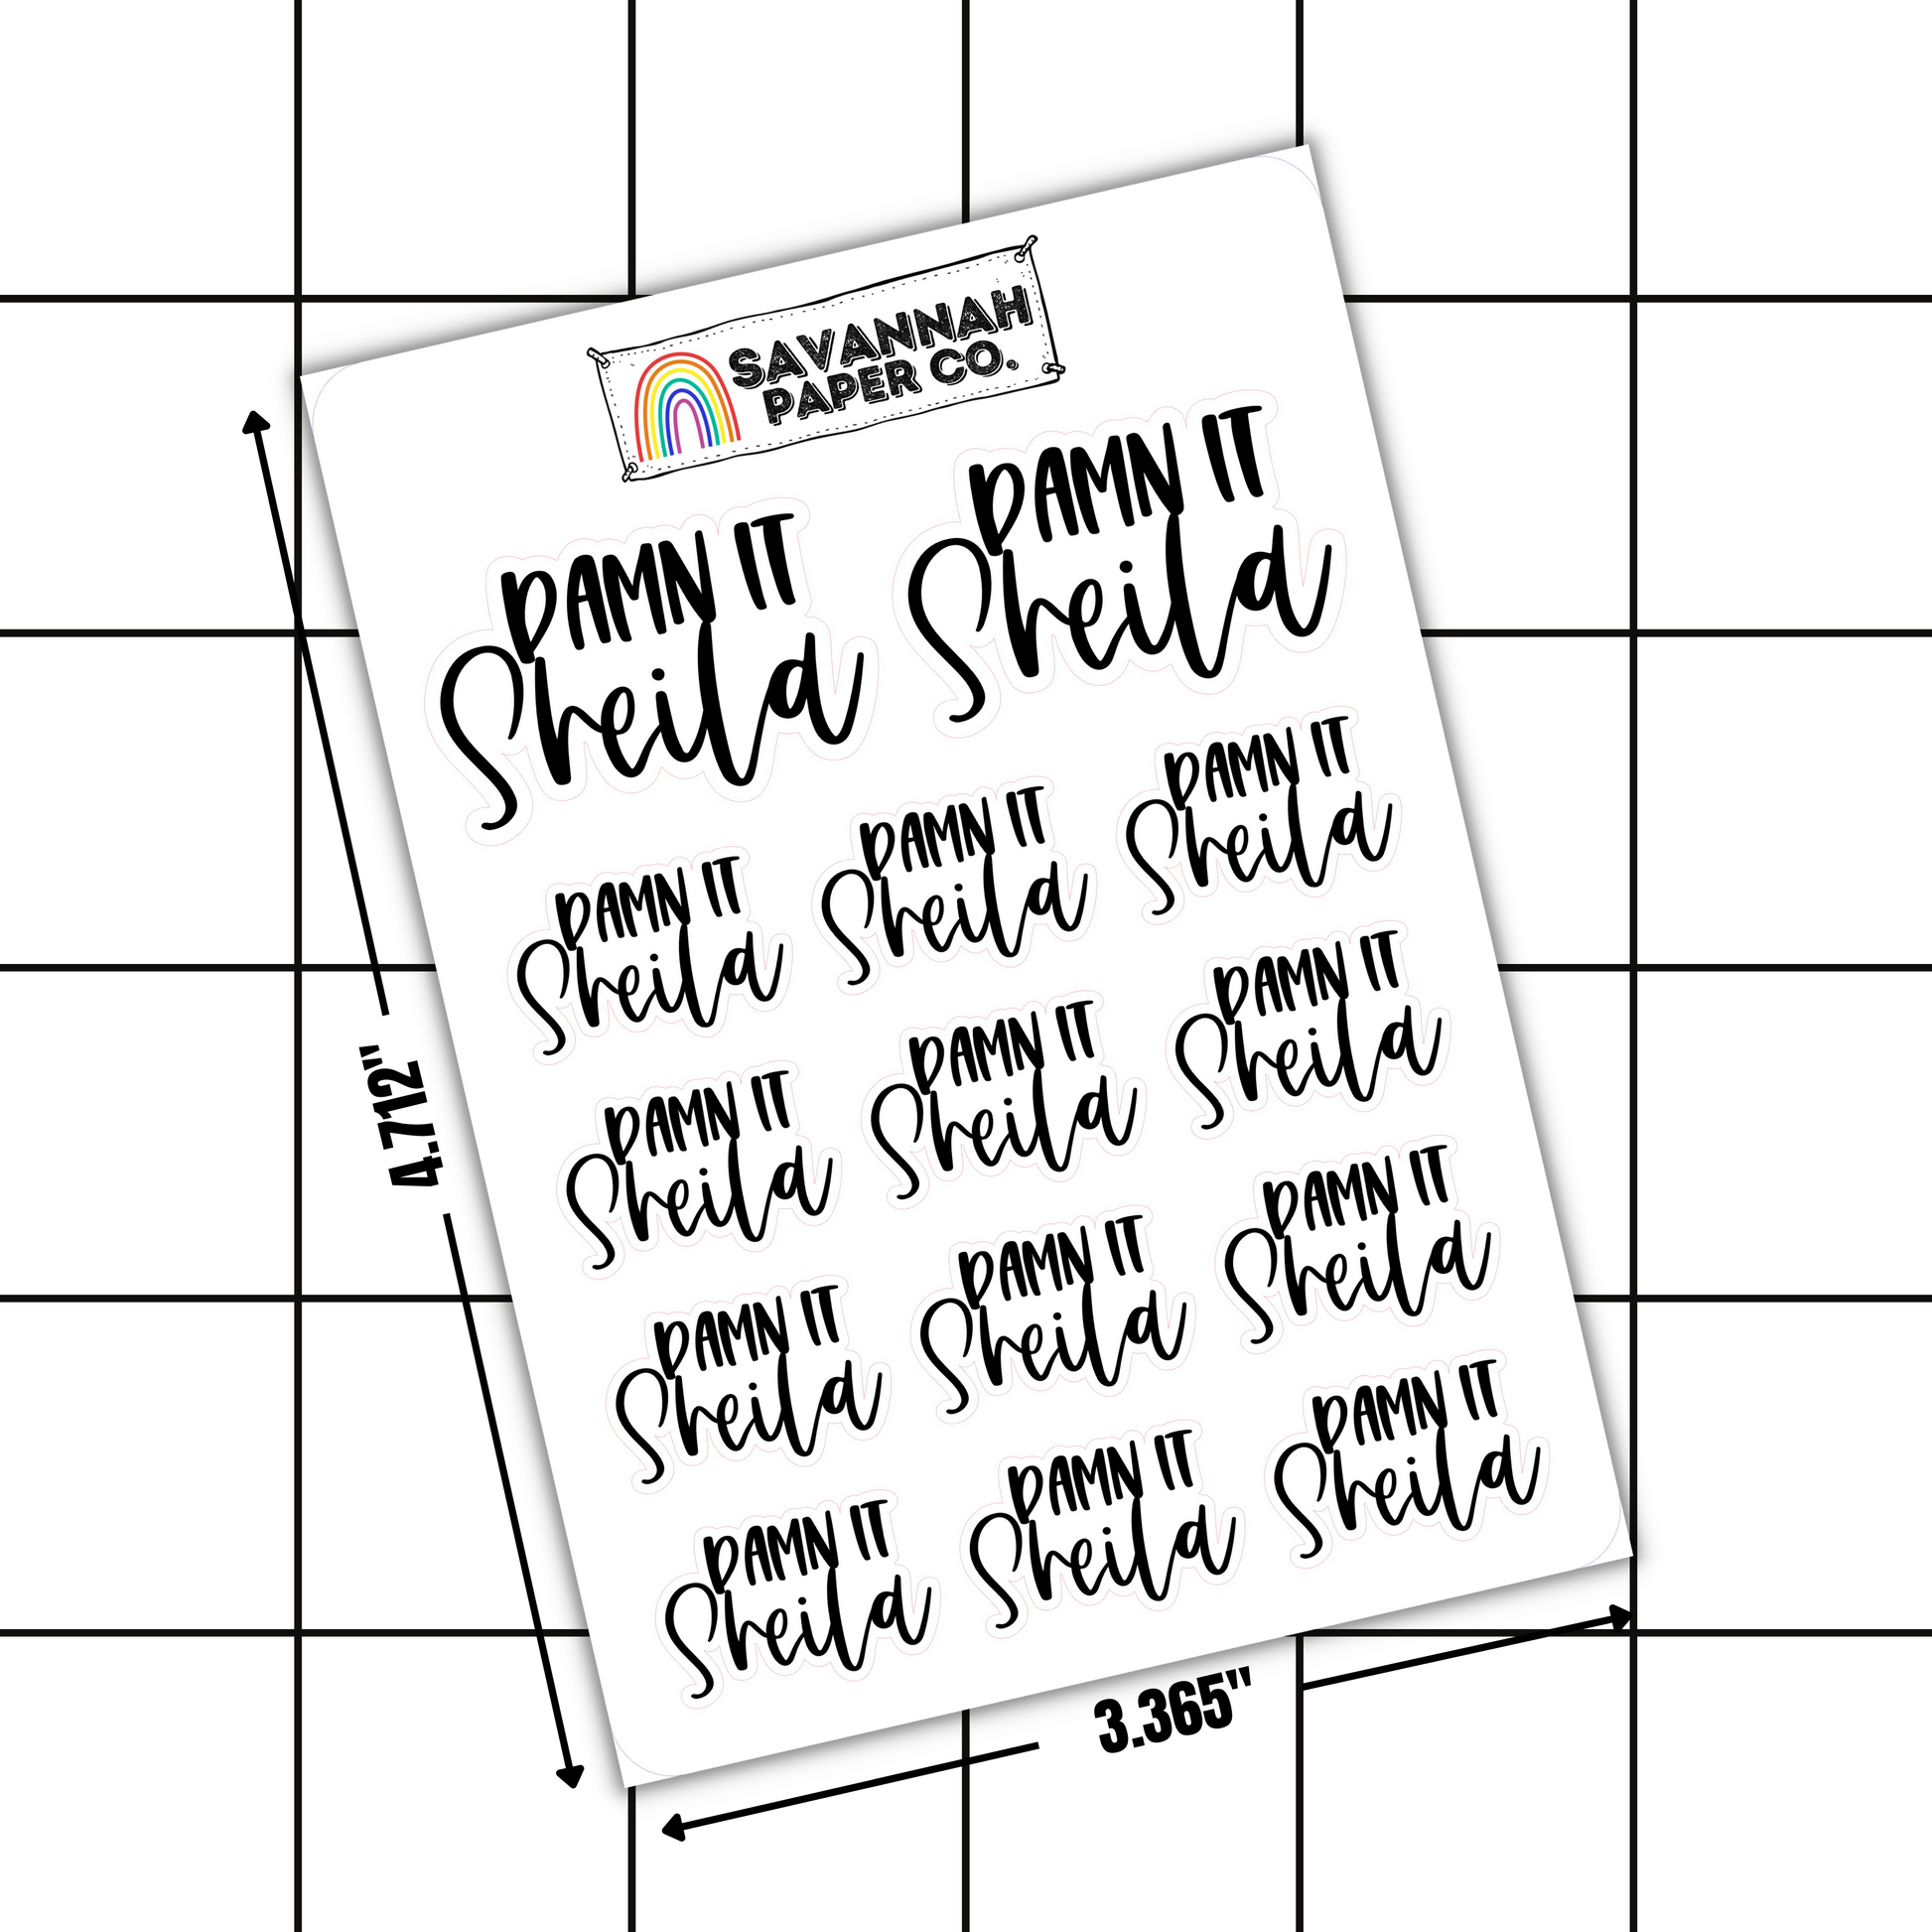 SAVANNAH
PAPER CO.
DAMN IT
Sheila
DAMN IT
Sheila
DAMN IT
Sheila
DAMN IT
Sheila
DAMN IT
Sheila
DAMN IT
Sheila
DAMN IT
Sheila
DAMN IT
Sheila
DAMN IT
Sheila
DAMN IT
Sheila
DAMN IT
Sheila
DAMN IT
Sheila
DAMN IT
Sheila
DAMN IT
Sheila
4.712"
3.365"